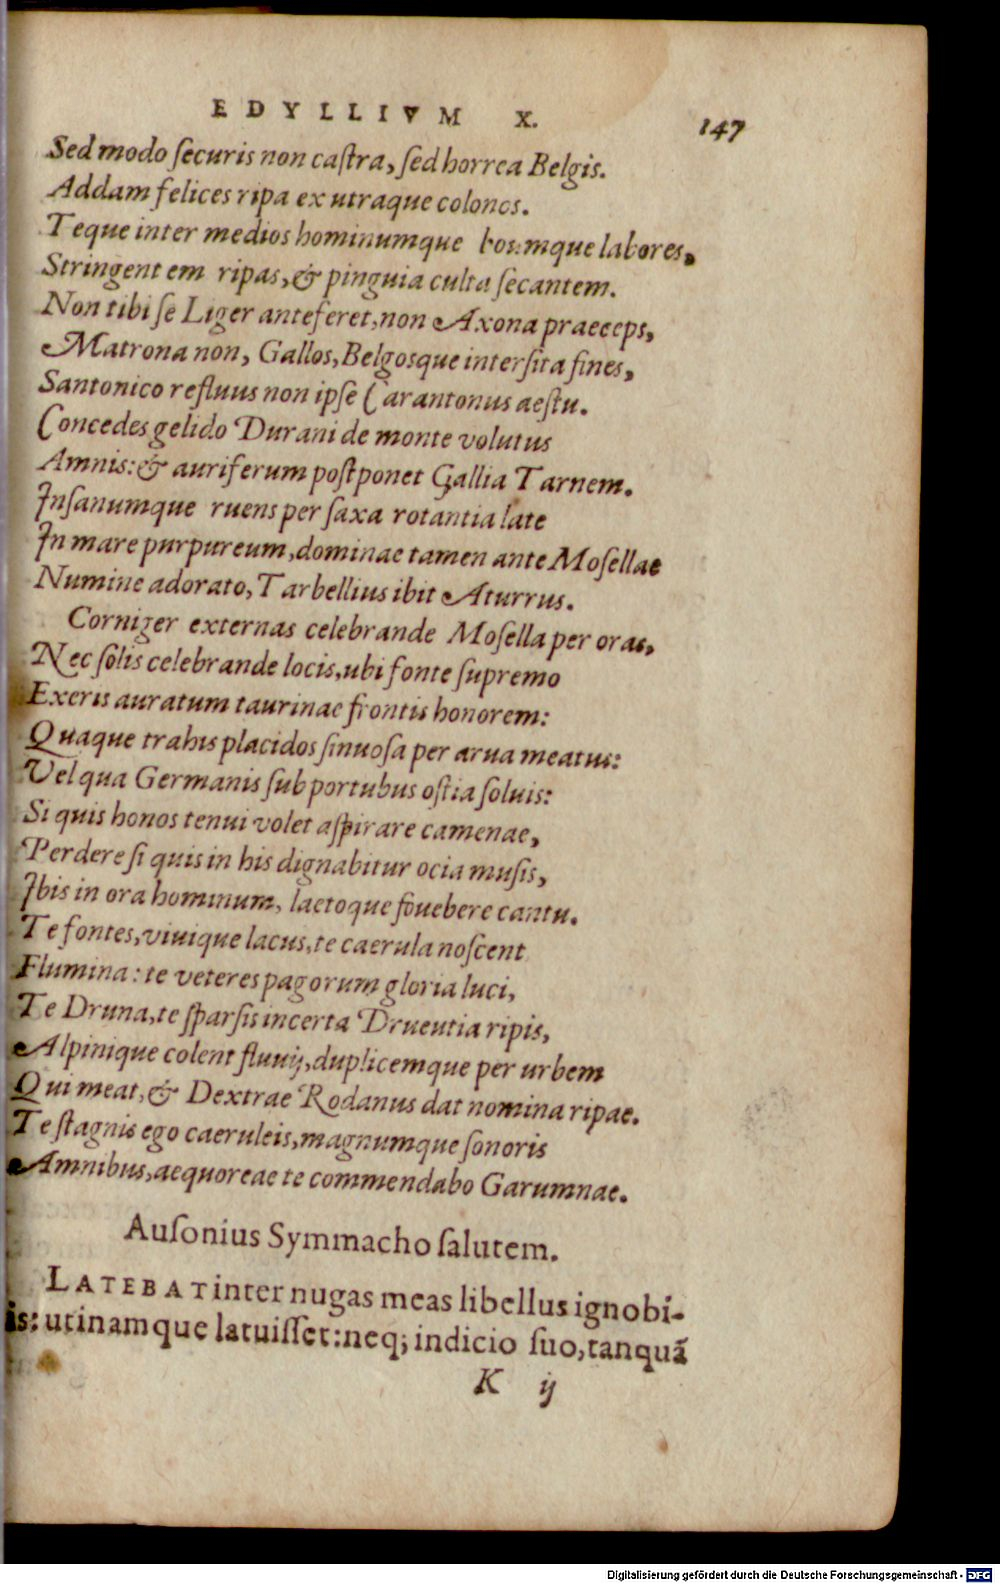 EDYLLIVM X. 147
Sed modo ſecuris non caſtra, ſed horrea Belgis.
Addam felices ripa ex utraque colonos.
Teque inter medios hominumque boumque labores,
Stringentem ripas, & pinguia culta ſecantem.
Non tibi ſe Liger anteferet, non Axona praeceps,
Matrona non, Gallos, Belgosque interſita fines,
Santonico refluus non ipſe Carantonus aeſtu.
Concedes gelido Durani de monte volutus
Amnis: & auriferum poſtponet Gallia Tarnem.
Inſanumque ruens per ſaxa rotantia late
In mare purpureum, dominae tamen ante Moſellae
Numine adorato, Tarbellius ibit Aturrus.
Corniger externas celebrande Moſella per oras,
Nec ſolis celebrande locis, ubi fonte ſupremo
Exeris auratum taurinae frontis honorem:
Quaque trahis placidos ſinuoſa per arua meatus:
Vel qua Germanis ſub portubus oſtia ſoluis:
Si quis honos tenui volet aſpirare camenae,
Perdere ſi quis in his dignabitur ocia muſis,
Ibis in ora hominum, laetoque fouebere cantu.
Te fontes, viuique lacus, te caerula noſcent
Flumina: te veteres pagorum gloria luci,
Te Druna, te ſparſis incerta Druentia ripis,
Alpinique colent fluuij, duplicemque per urbem
Qui meat, & Dextrae Rodanus dat nomina ripae.
Te ſtagnis ego caeruleis, magnumque ſonoris
Amnibus, aequoreae te commendabo Garumnae.
Auſonius Symmacho ſalutem.
LATEBAT inter nugas meas libellus ignobi-
is: utinamque latuiſſet: neq; indicio ſuo, tanquã
K ij
Digitalisierung gefördert durch die Deutsche Forschungsgemeinschaft - DFG